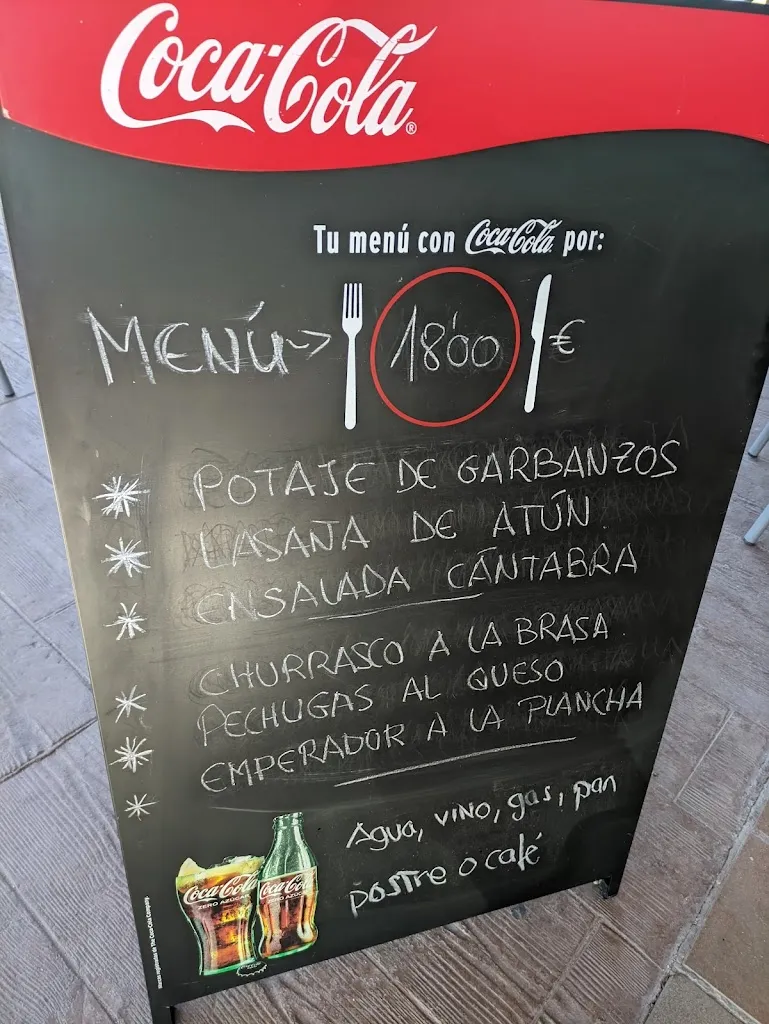 Coca-Cola®
Tu menú con Coca-Cola por:
MENÚ~> 18'00 €
* POTAJE DE GARBANZOS
* LASAÑA DE ATÚN
* ENSALADA CÁNTABRA
* CHURRASCO A LA BRASA
* PECHUGAS AL QUESO
* EMPERADOR A LA PLANCHA
Agua, vino, gas, pan
postre o café
Coca-Cola
ZERO AZÚCAR
Coca-Cola
ZERO AZÚCAR
Marcas registradas de The Coca-Cola Company.